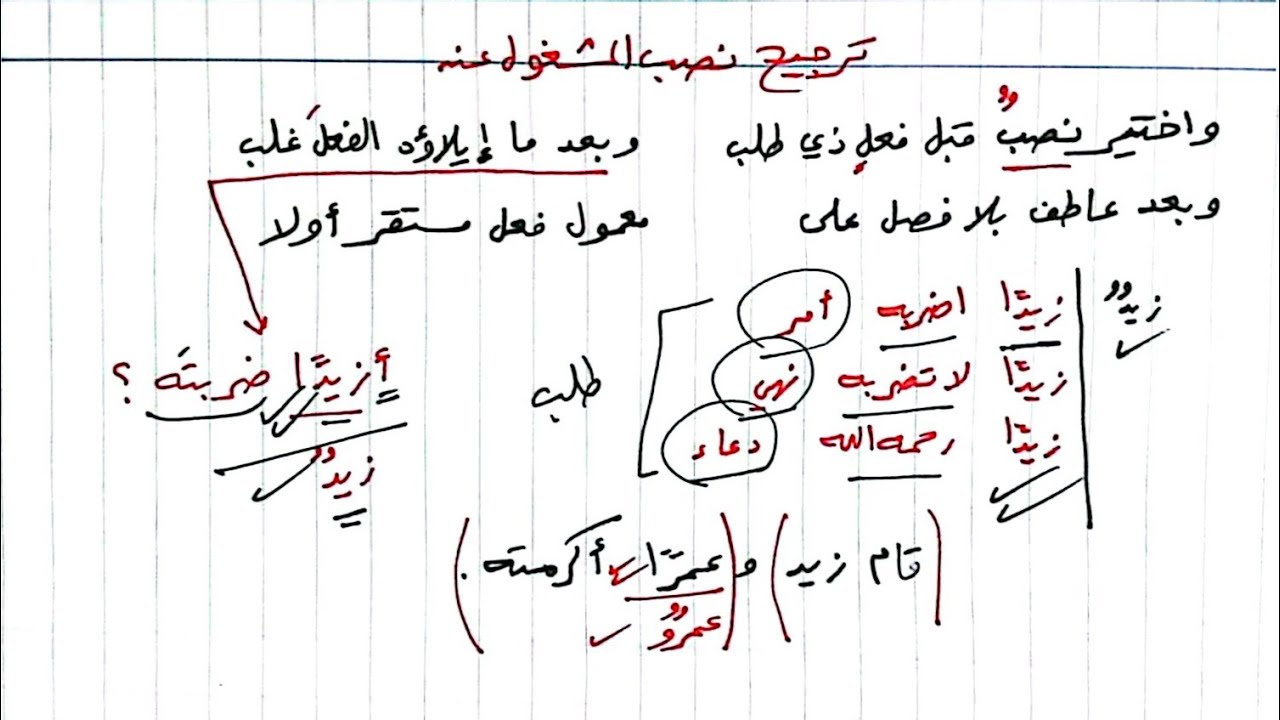 ترجيح نصب المشغول عنه
واختير نصبٌ قبل فعلٍ ذي طلب وبعد ما إيلاؤه الفعلَ غلب
وبعد عاطف بلا فصل على معمول فعل مستقر أولا
زيدٌ زيدًا اضربه أمر
زيدًا لا تضربه نهي طلب
زيدًا رحمه الله دعاء
أزيدًا ضربتَه ؟
زيدٌ
(قام زيد) و (عمرًا أكرمته.)
عمروٌ